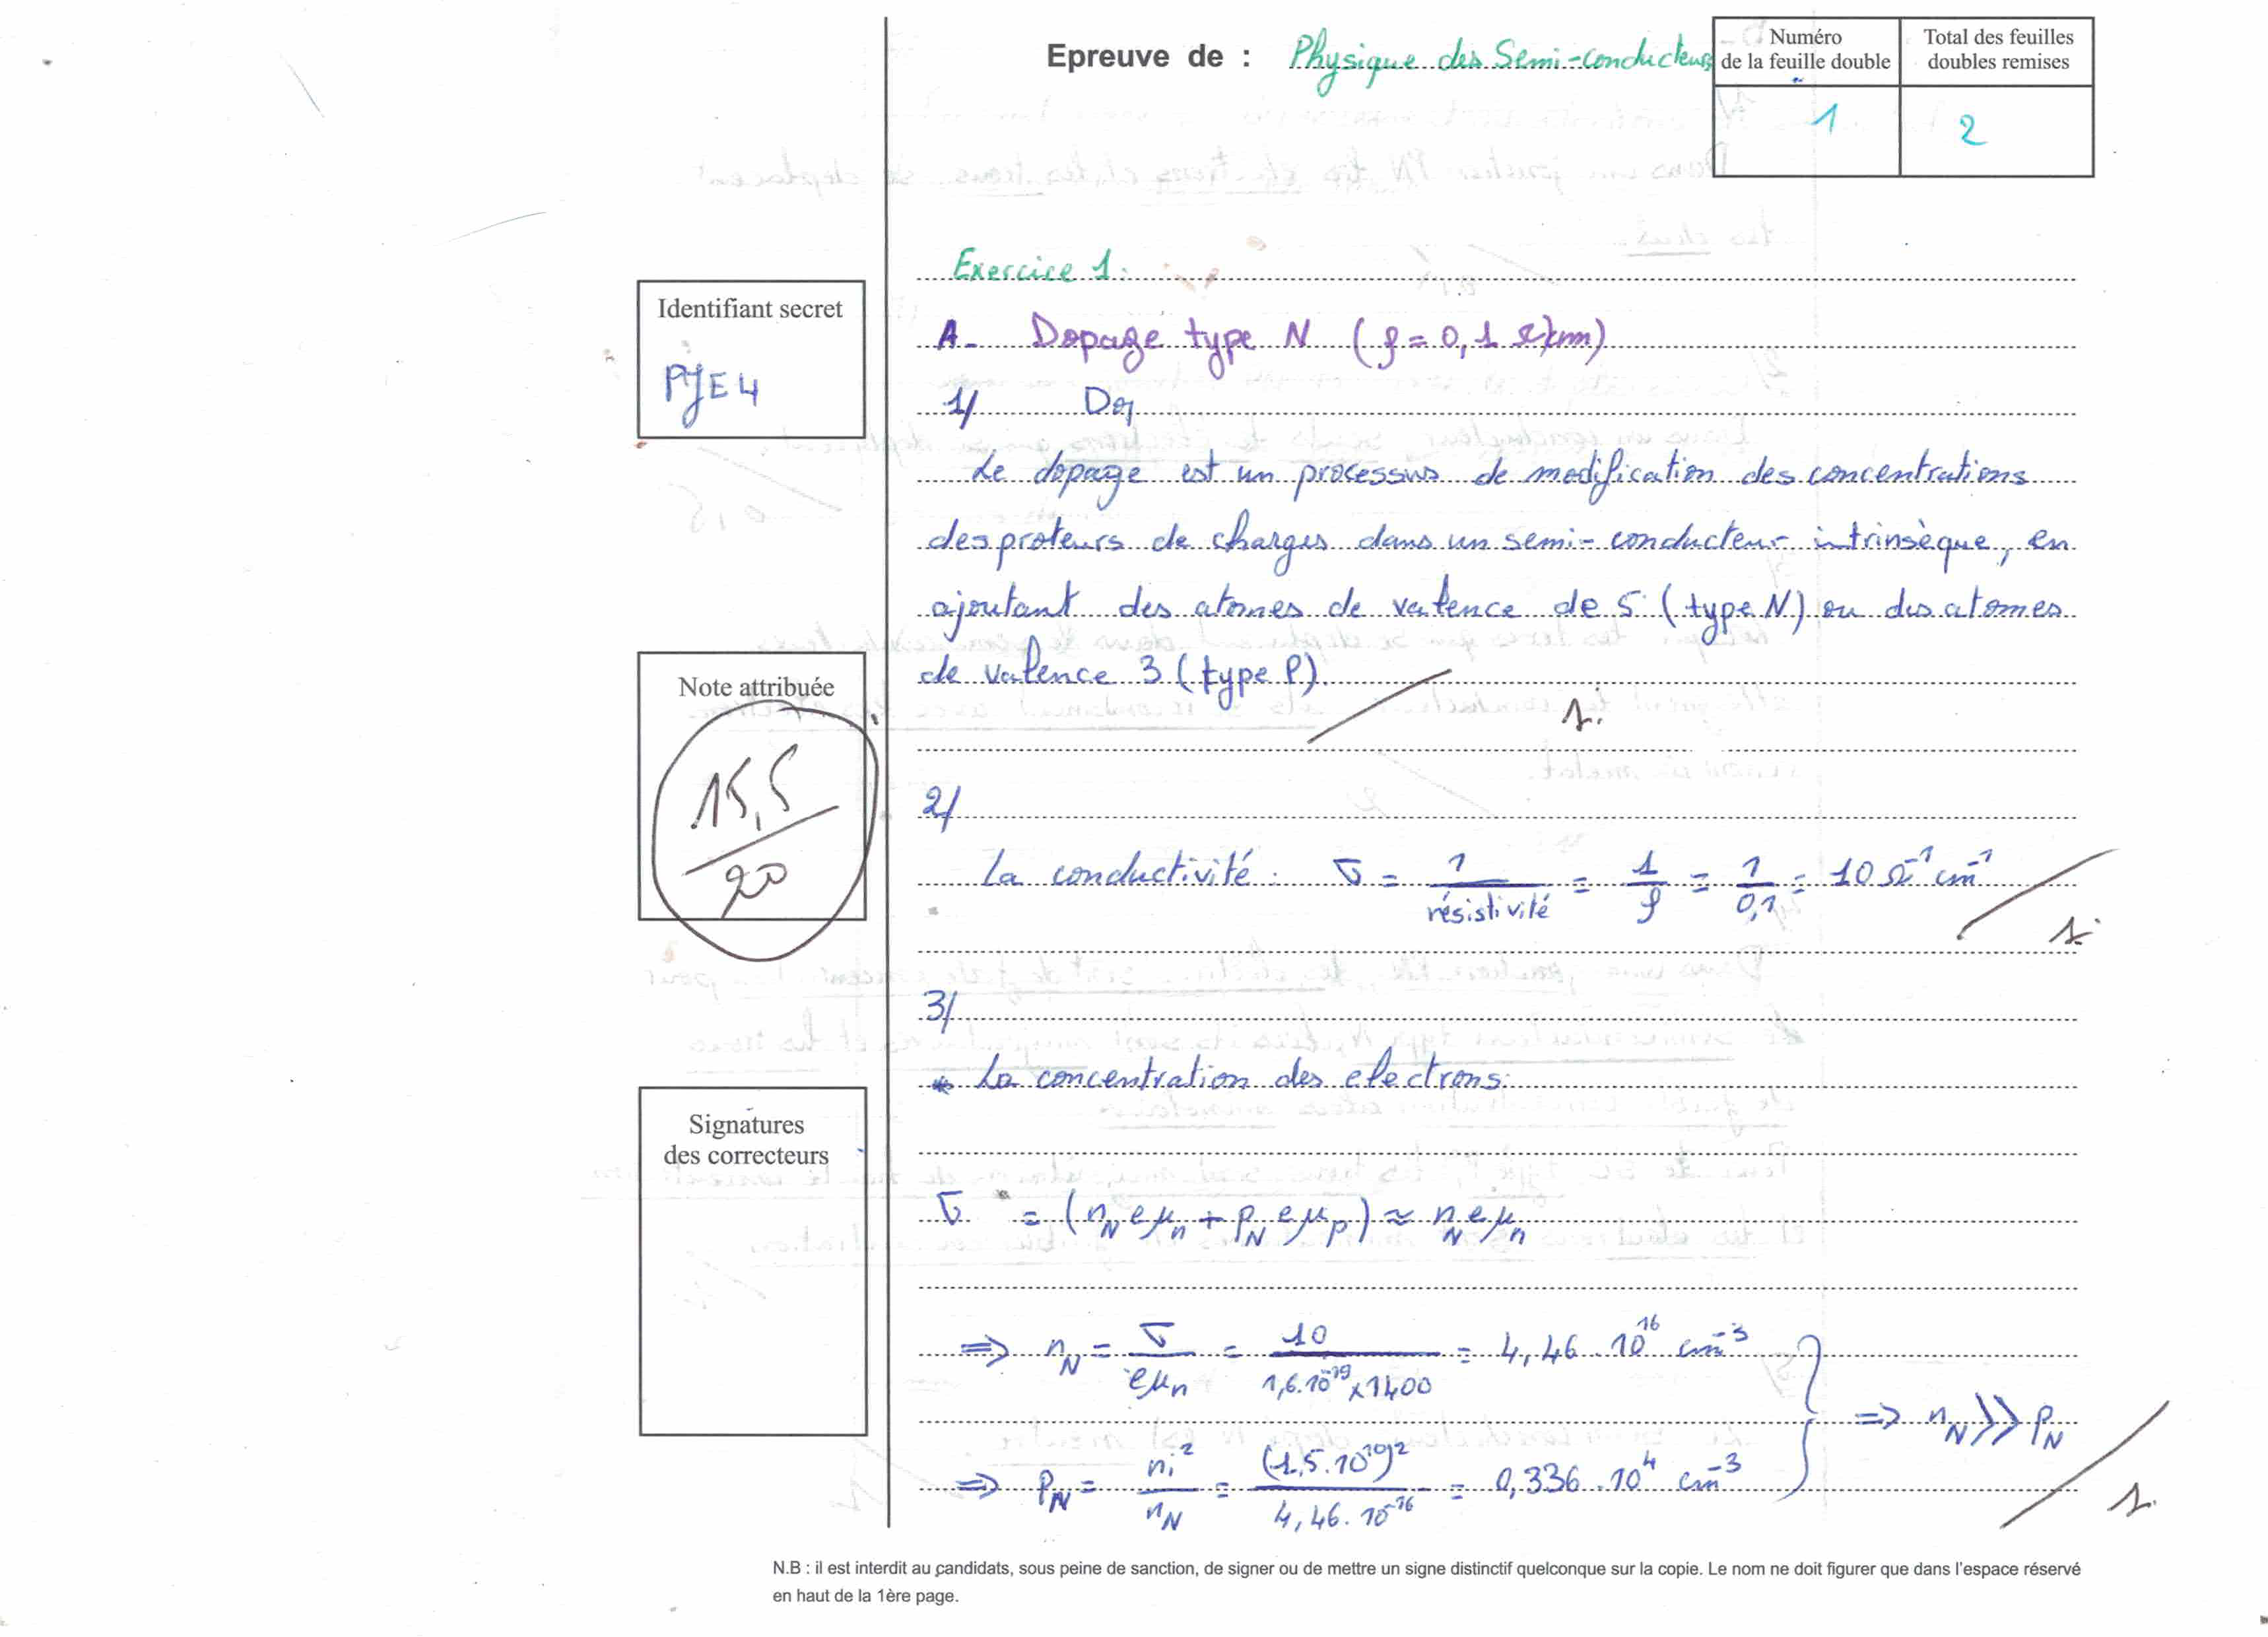 Epreuve de : Physique des Semi-conducteurs
Numéro de la feuille double
Total des feuilles doubles remises
1
2
Identifiant secret
PJE4
Note attribuée
15,5/20
Signatures des correcteurs
Exercice 1:
A- Dopage type N (ρ = 0,1 Ω cm)
1/ Doj
Le dopage est un processus de modification des concentrations
des proteurs de charges dans un semi-conducteur intrinsèque, en
ajoutant des atomes de valence de 5 (type N) ou des atomes
de valence 3 (type P).
1.
2/
La conductivité : σ = 1/résistivité = 1/ρ = 1/0,1 = 10 Ω⁻¹ cm⁻¹
1.
3/
* La concentration des electrons:
σ = (n_N e μ_n + p_N e μ_p) ≈ n_N e μ_n
⇒ n_N = σ/(e μ_n) = 10/(1,6.10⁻¹⁹ x 1400) = 4,46 . 10¹⁶ cm⁻³
⇒ p_N = n_i²/n_N = (1,5.10¹⁰)²/(4,46. 10⁻¹⁶) = 0,336 . 10⁴ cm⁻³
⇒ n_N >> p_N
1.
N.B : il est interdit au candidats, sous peine de sanction, de signer ou de mettre un signe distinctif quelconque sur la copie. Le nom ne doit figurer que dans l'espace réservé
en haut de la 1ère page.